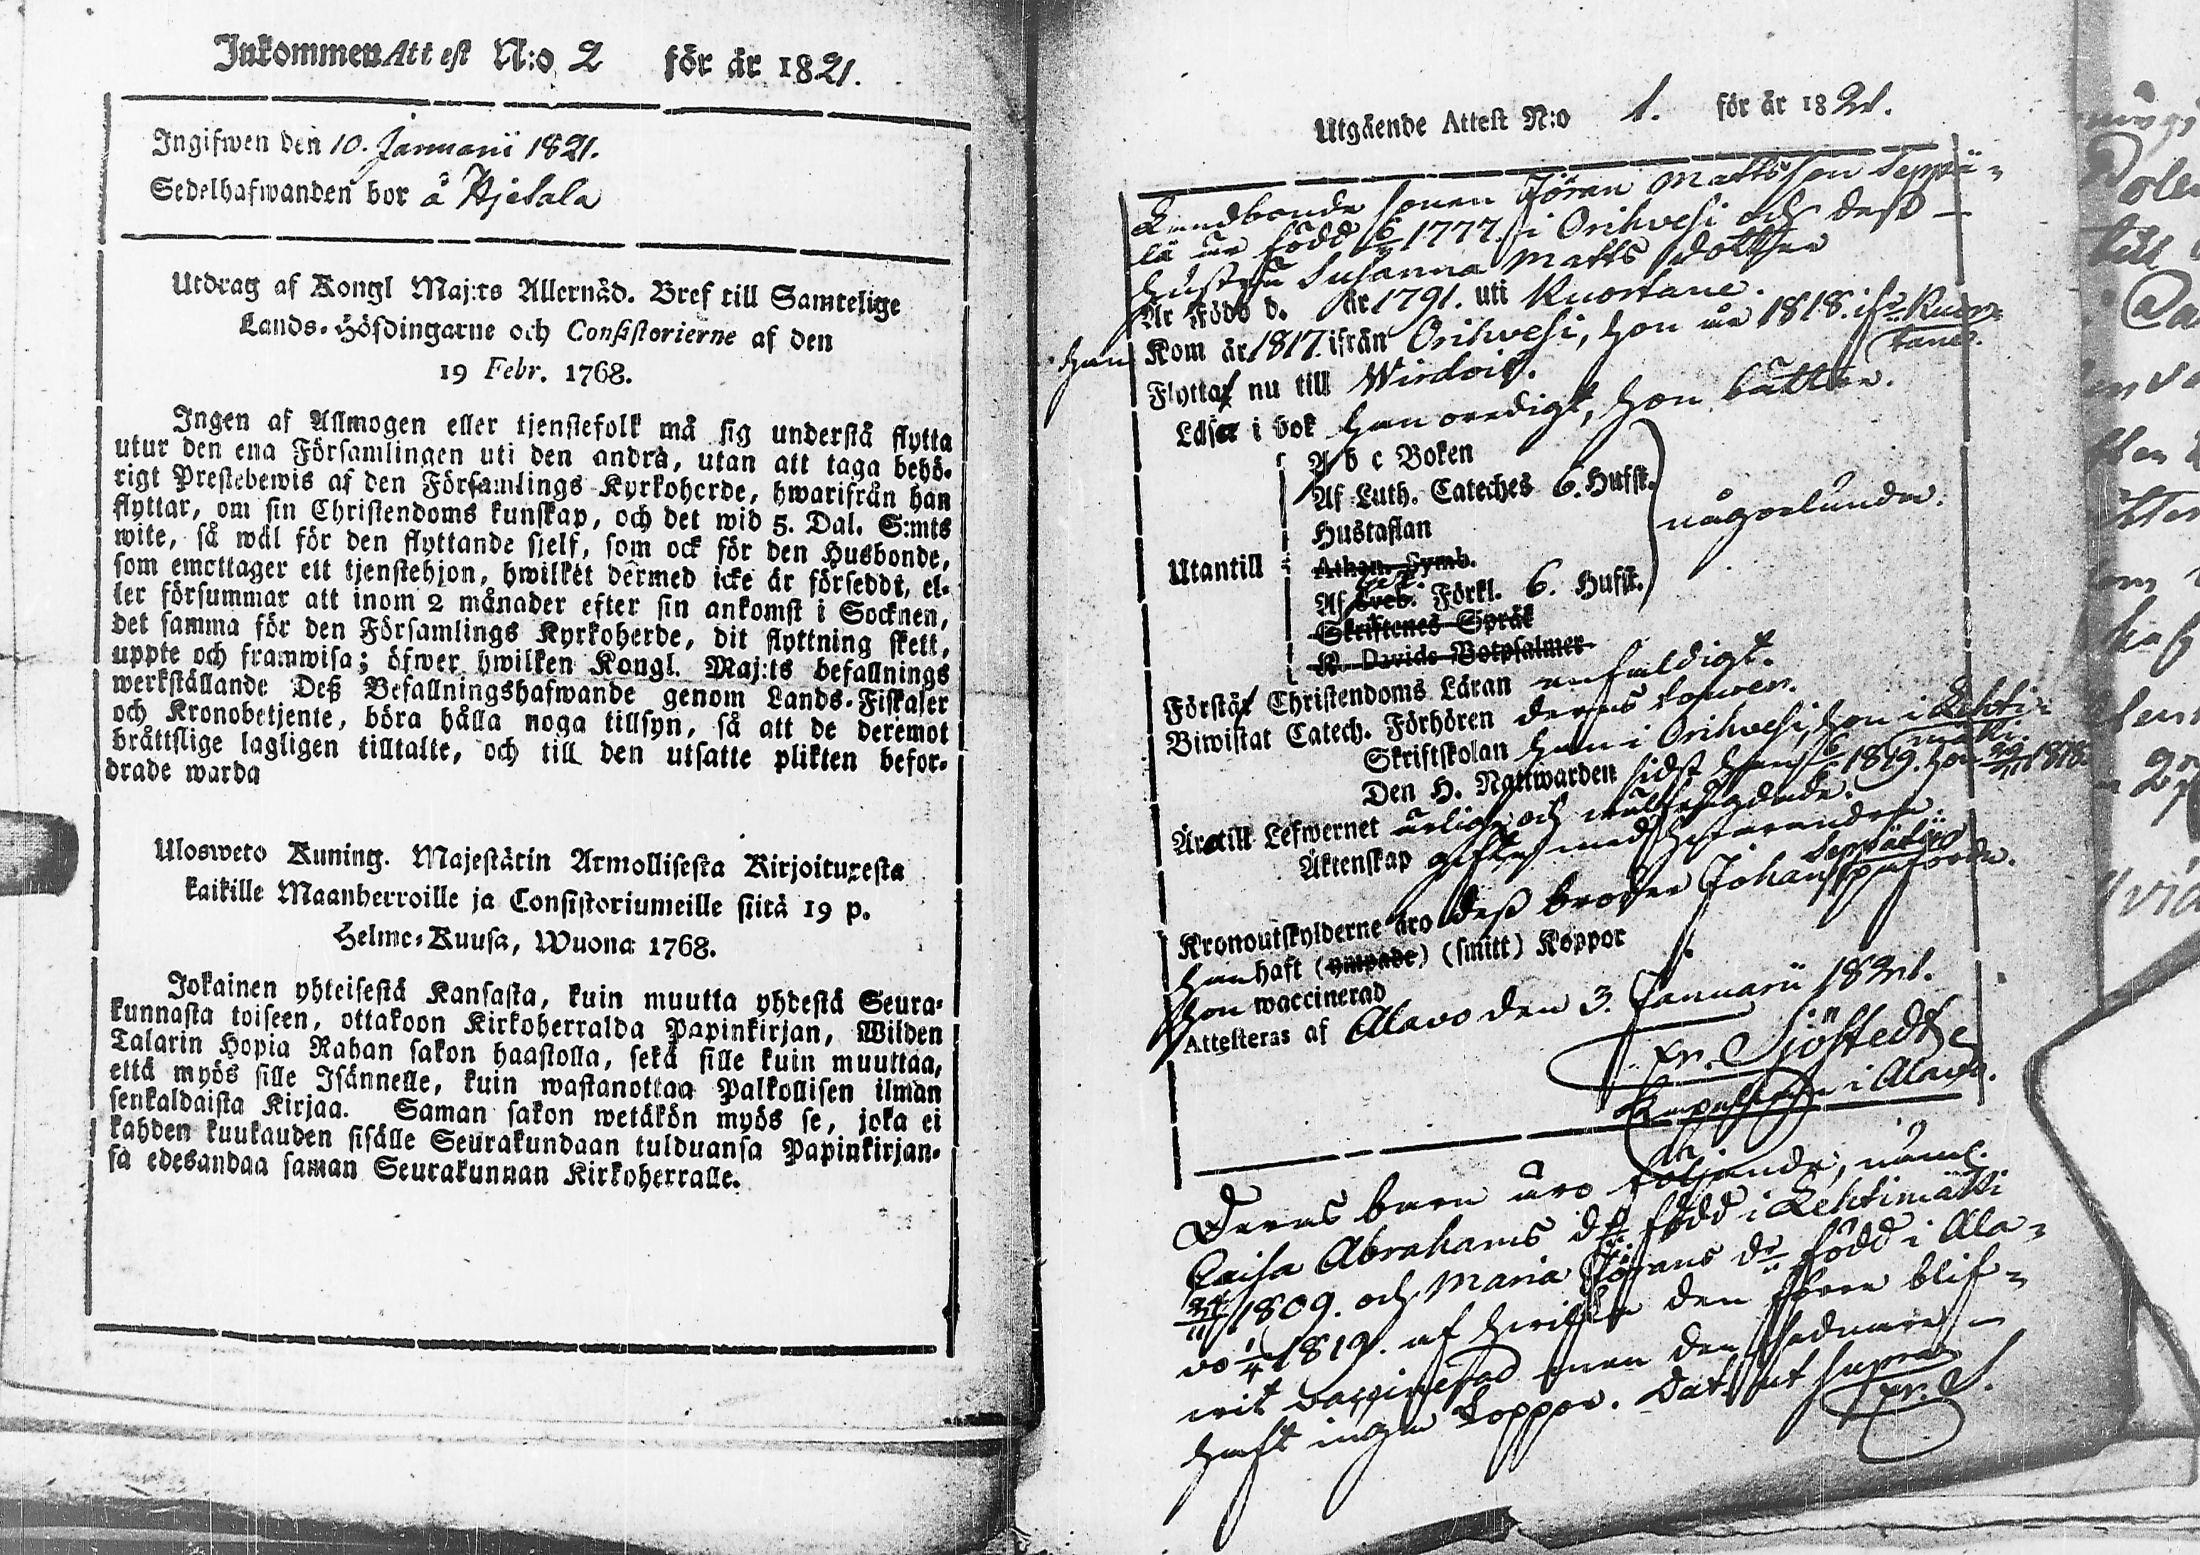 Inkommen Attest N:o 2 för år 1821.
Ingifwen den 10. Januarii 1821.
Sedelhafwanden bor å Hjetala
Utdrag af Kongl Maj:ts Allernåd. Bref till Samtelige
Lands-Höfdingarne och Consistorierne af den
19 Febr. 1768.
Ingen af Allmogen eller tjenstefolk må sig understå flytta
utur den ena Församlingen uti den andra, utan att taga behö-
rigt Prestebewis af den Församlings Kyrkoherde, hwarifrån han
flyttar, om sin Christendoms kunskap, och det wid 5. Dal. S:mts
wite, så wäl för den flyttande sjelf, som ock för den Husbonde,
som emottager ett tjenstehjon, hwilket dermed icke är försedt, el-
ler försummar att inom 2 månader efter sin ankomst i Socknen,
det samma för den Församlings Kyrkoherde, dit flyttning skett,
uppte och framwisa; öfwer hwilken Kongl. Maj:ts befallnings
werkställande Deß Befallningshafwande genom Lands-Fiskaler
och Kronobetjente, böra hålla noga tillsyn, så att de deremot
bråttslige lagligen tilltalte, och till den utsatte plikten befor-
drade warda
Ulosweto Kuning. Majestätin Armollisesta Kirjoituxesta
kaikille Maanherroille ja Consistoriumeille siitä 19 p.
Helme-Kuusa, Wuona 1768.
Jokainen yhteisestä Kansasta, kuin muutta yhdestä Seura-
kunnasta toiseen, ottakoon Kirkoherralda Papinkirjan, Wilden
Talarin Hopia Rahan sakon haastolla, sekä sille kuin muuttaa,
että myös sille Isännelle, kuin wastanottaa Palkollisen ilman
senkaldaista Kirjaa. Saman sakon wetäkön myös se, joka ei
kahden kuukauden sisälle Seurakundaan tulduansa Papinkirjan-
sa edesandaa saman Seurakunnan Kirkoherralle.
Utgående Attest N:o 1. för år 1821.
Landbonde sonen Jöran Mattsson Seppä-
lä är född 6/ 1777. i Orihvesi och dess
hustru Susanna Matts dotter
Är Född d. år 1791. uti Kuortane.
han Kom år 1817. ifrån Orihvesi, hon år 1818. ifr. Kuor-
tane.
Flytta nu till Wirdois.
Läser i bok han oredigt, hon bättre.
A b c Boken
Af Luth. Cateches 6. Hufst.
Hustaflan
någorlunda.
Utantill
Athan. Symb.
Af Sveb. Förkl. 6. Hufst.
Skriftenes Språk
K. Davids Botpsalmer
Förstå Christendoms Läran enfaldigt.
Biwistat Catech. Förhören deras
Skriftskolan han i Orihvesi, hon i Lehti-
mäki.
Den H. Nattwarden sidst han 1819. hon 1818
Äro till Lefwernet ärlige och
Äktenskap gifte med hvarandra.
Seppälä
Kronoutskylderne äro dess broder Johan påförde.
han haft (ympade) (smitt) Koppor
hon waccinerad
Attesteras af Alavo den 3. Januarii 1821.
Fr. Sjöstedt
Kapellan i Alavo.
Deras barn äro följande, näml.
Caisa Abrahams dr född i Lehtimäki
24/11 1809. och Maria Görans dr född i Ala-
vo 1/4 1819. af hvilka den förra blif-
vit vaccinerad men den sednare
haft inga koppor. Dat. ut supra
Fr. S.